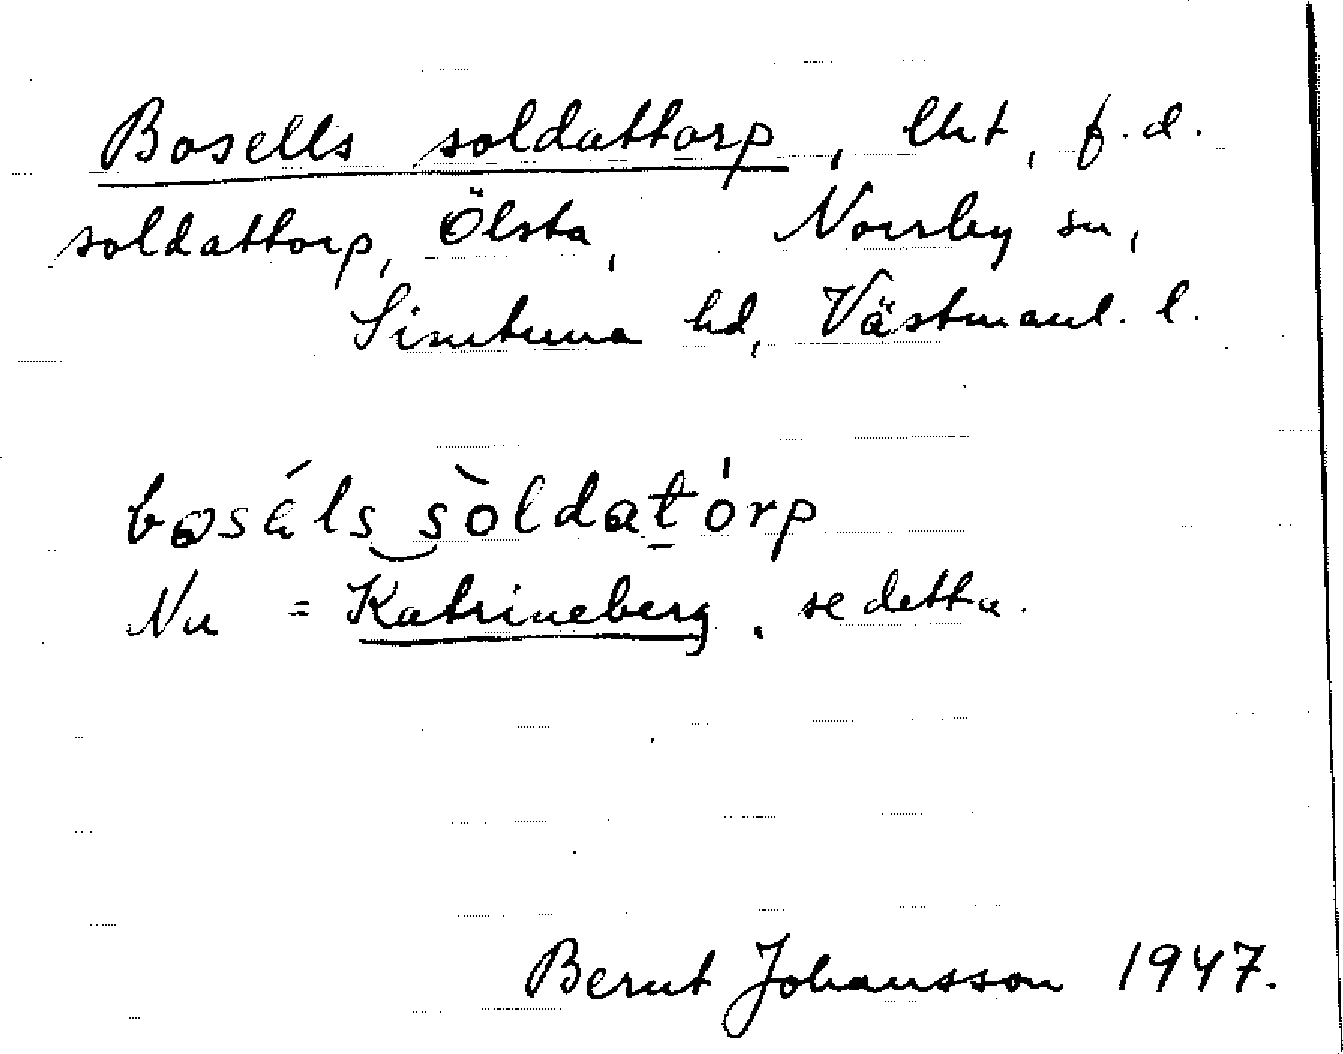 Bosells soldattorp, lht, f.d.
soldattorp, Ölsta, Norrby sn,
Simtuna hd, Västmanl. l.
bosáls sòldatórp
Nu = Katrineberg, se detta.
Bernt Johansson 1947.